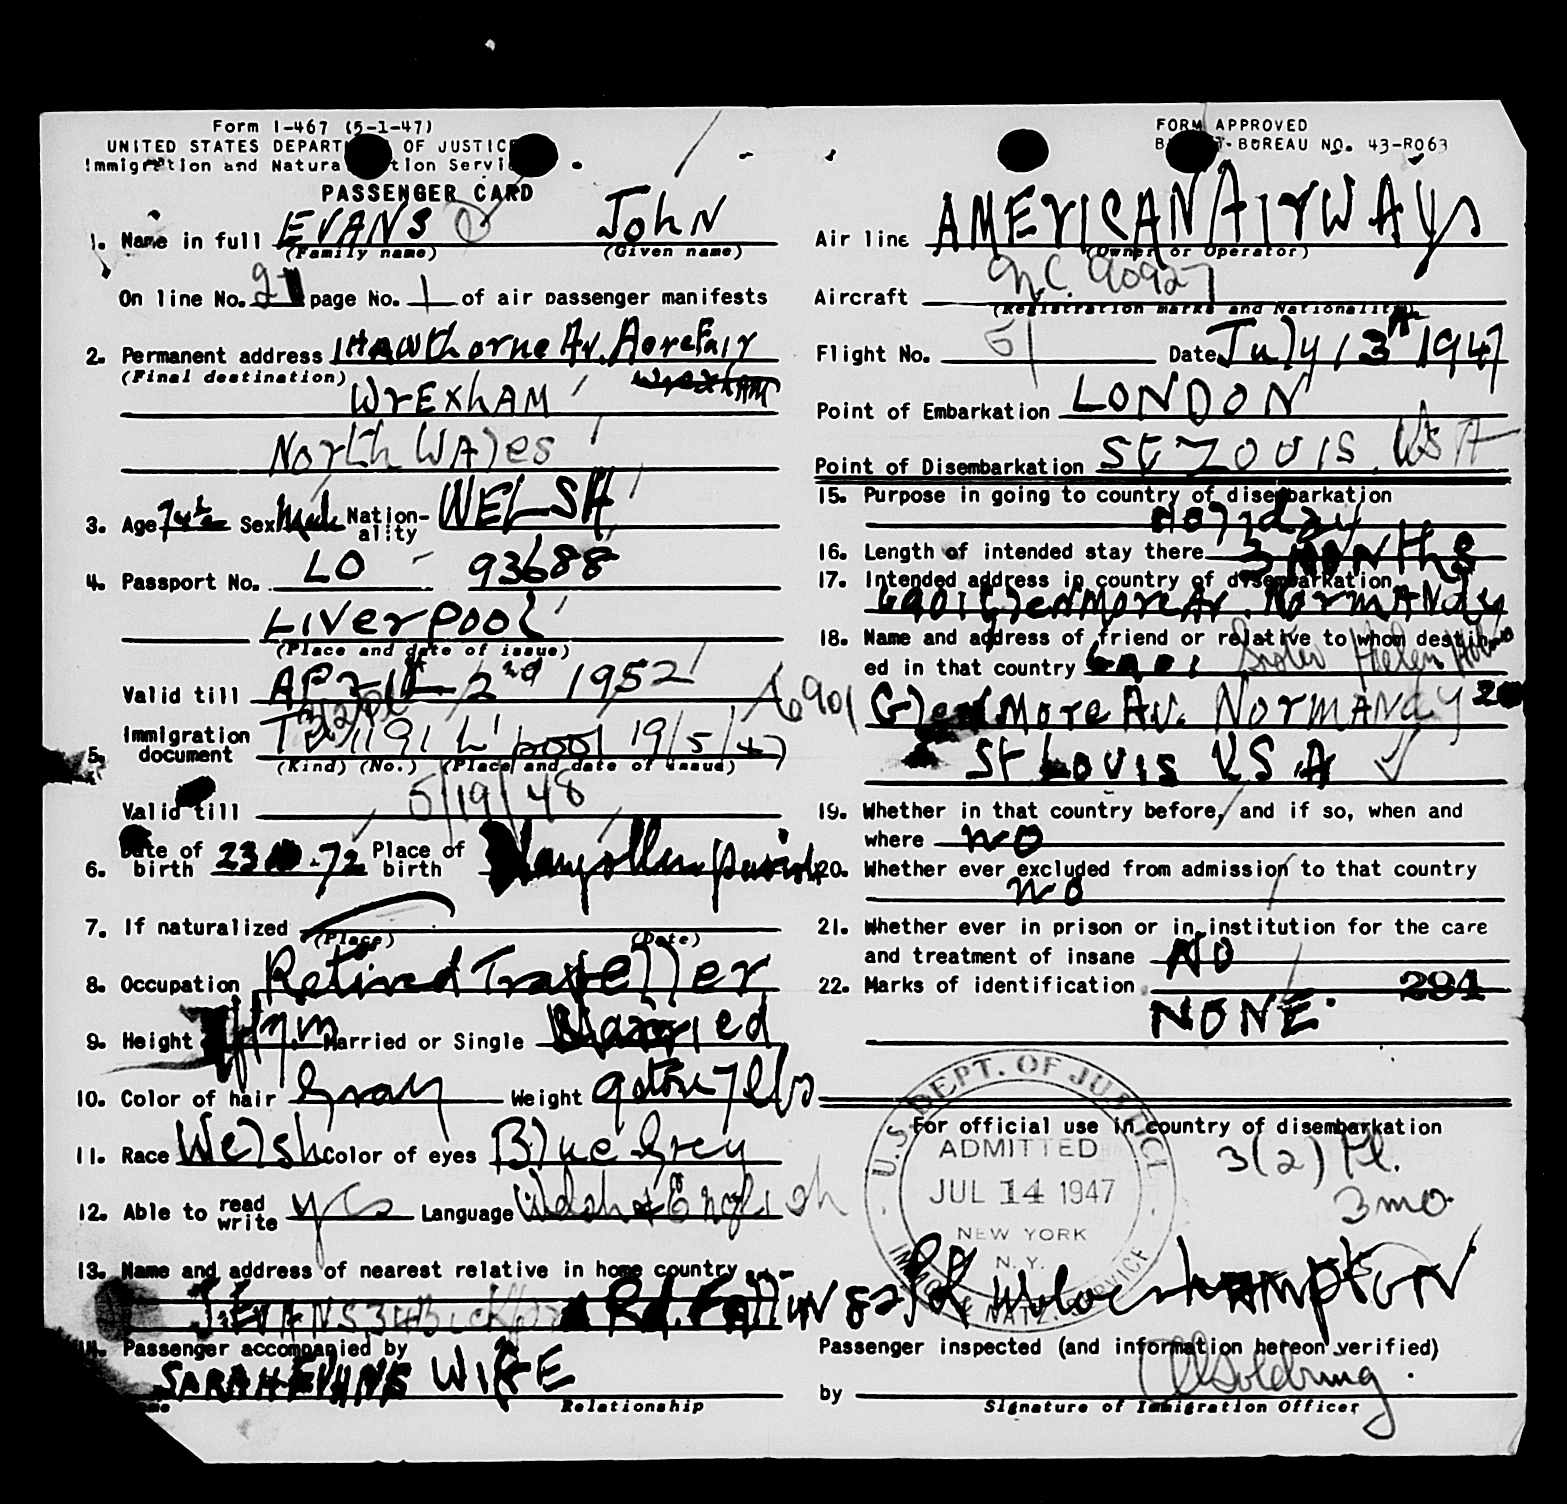 Form I-467 (5-1-47)
UNITED STATES DEPARTMENT OF JUSTICE
Immigration and Naturalization Service
PASSENGER CARD
1. Name in full EVANS John
(Family name) (Given name)
On line No. page No. 1 of air passenger manifests
2. Permanent address 1 Hawthorne Av. Acrefair
(Final destination) Wrexham
WrExhAM
North WAles
3. Age 74 Sex Male Nationality WELSH
4. Passport No. LO 93688
LIVerpool
(Place and date of issue)
Valid till 2nd 1952
5. Immigration document 1191 L'pool 19/5/47
(Kind) (No.) (Place and date of issue)
Valid till 5/19/48
6. Date of birth 23 .72 Place of birth
7. If naturalized
(Place) (Date)
8. Occupation Retired Traveller
9. Height Married or Single Married
10. Color of hair Gray Weight 9 stone 7 lbs
11. Race Welsh Color of eyes Blue Grey
12. Able to read write yes Language Welsh & English
13. Name and address of nearest relative in home country
J. EVANS 34 Rd. Fallings PK Wolverhampton
14. Passenger accompanied by
SARAH EVANS WIFE
Name Relationship
FORM APPROVED
BUDGET BUREAU NO. 43-R063
Air line AMErICAN AIrWAys
(Owner or Operator)
Aircraft N.C. 90927
(Registration marks and Nationality)
Flight No. 51 Date July 13th 1947
Point of Embarkation LONDON
Point of Disembarkation St LOUIS. USA
15. Purpose in going to country of disembarkation
Holiday
16. Length of intended stay there 3 MONths
17. Intended address in country of disembarkation
6901 GlenMore Av. NormANdy
18. Name and address of friend or relative to whom destined in that country 6901 Sister Helen
6901 GlenMore Av. NormANdy 20
St Louis USA
19. Whether in that country before, and if so, when and
where NO
20. Whether ever excluded from admission to that country
NO
21. Whether ever in prison or in institution for the care
and treatment of insane NO
22. Marks of identification 294
NONE.
For official use in country of disembarkation
U.S. DEPT. OF JUSTICE
ADMITTED
JUL 14 1947
NEW YORK
N. Y.
IMMIG. & NATZ. SERVICE
3(2)
3 mo.
Passenger inspected (and information hereon verified)
by
Signature of Immigration Officer